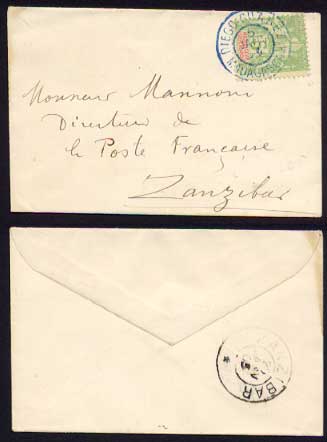 DIEGO-SUAREZ
MADAGASCAR
Monsieur Mannoni
Directeur de
la Poste Française
Zanzibar
ZANZIBAR